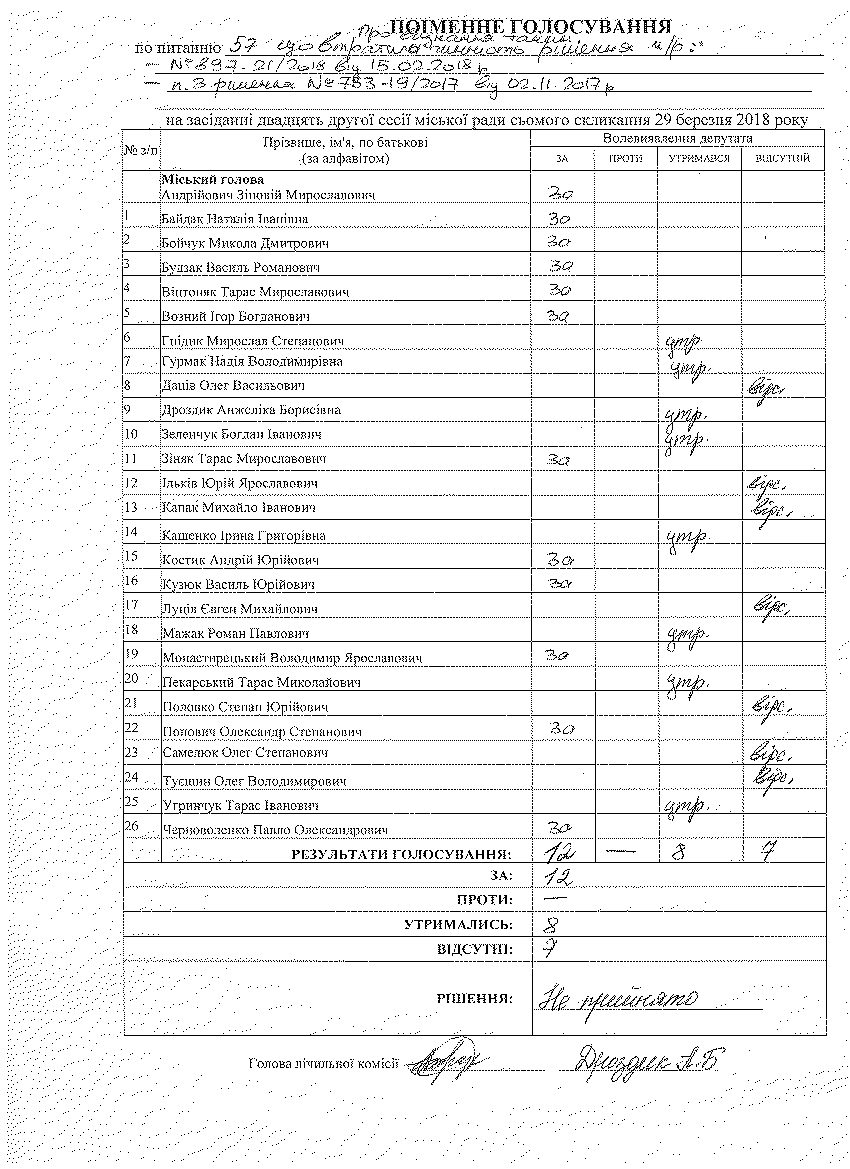 ПОІМЕННЕ ГОЛОСУВАННЯ
Про визнання таким
по питанню 57 що втратили чинність рішення м/р:
– № 897-21/2018 від 15.02.2018 р
– п.3 рішення № 753-19/2017 від 02.11.2017 р
на засіданні двадцять другої сесії міської ради сьомого скликання 29 березня 2018 року
№ з/п Прізвище, ім'я, по батькові (за алфавітом) Волевиявлення депутата
ЗА ПРОТИ УТРИМАВСЯ ВІДСУТНІЙ
Міський голова
Андрійович Зіновій Мирославович За
1 Байдак Наталія Іванівна За
2 Бойчук Микола Дмитрович За
3 Будзак Василь Романович За
4 Вінтоняк Тарас Мирославович За
5 Возний Ігор Богданович За
6 Гнідик Мирослав Степанович утр.
7 Гурмак Надія Володимирівна утр.
8 Даців Олег Васильович відс.
9 Дроздик Анжеліка Борисівна утр.
10 Зеленчук Богдан Іванович утр.
11 Зіняк Тарас Мирославович За
12 Ільків Юрій Ярославович відс.
13 Капак Михайло Іванович відс.
14 Кашенко Ірина Григорівна утр.
15 Костик Андрій Юрійович За
16 Кузюк Василь Юрійович За
17 Луців Євген Михайлович відс.
18 Мажак Роман Павлович утр.
19 Монастирецький Володимир Ярославович За
20 Пекарський Тарас Миколайович утр.
21 Половко Степан Юрійович відс.
22 Попович Олександр Степанович За
23 Самелюк Олег Степанович відс.
24 Туєшин Олег Володимирович відс.
25 Угринчук Тарас Іванович утр.
26 Черноволенко Павло Олександрович За
РЕЗУЛЬТАТИ ГОЛОСУВАННЯ: 12 — 8 7
ЗА: 12
ПРОТИ: —
УТРИМАЛИСЬ: 8
ВІДСУТНІ: 7
РІШЕННЯ: Не прийнято
Голова лічильної комісії Дроздик А.Б